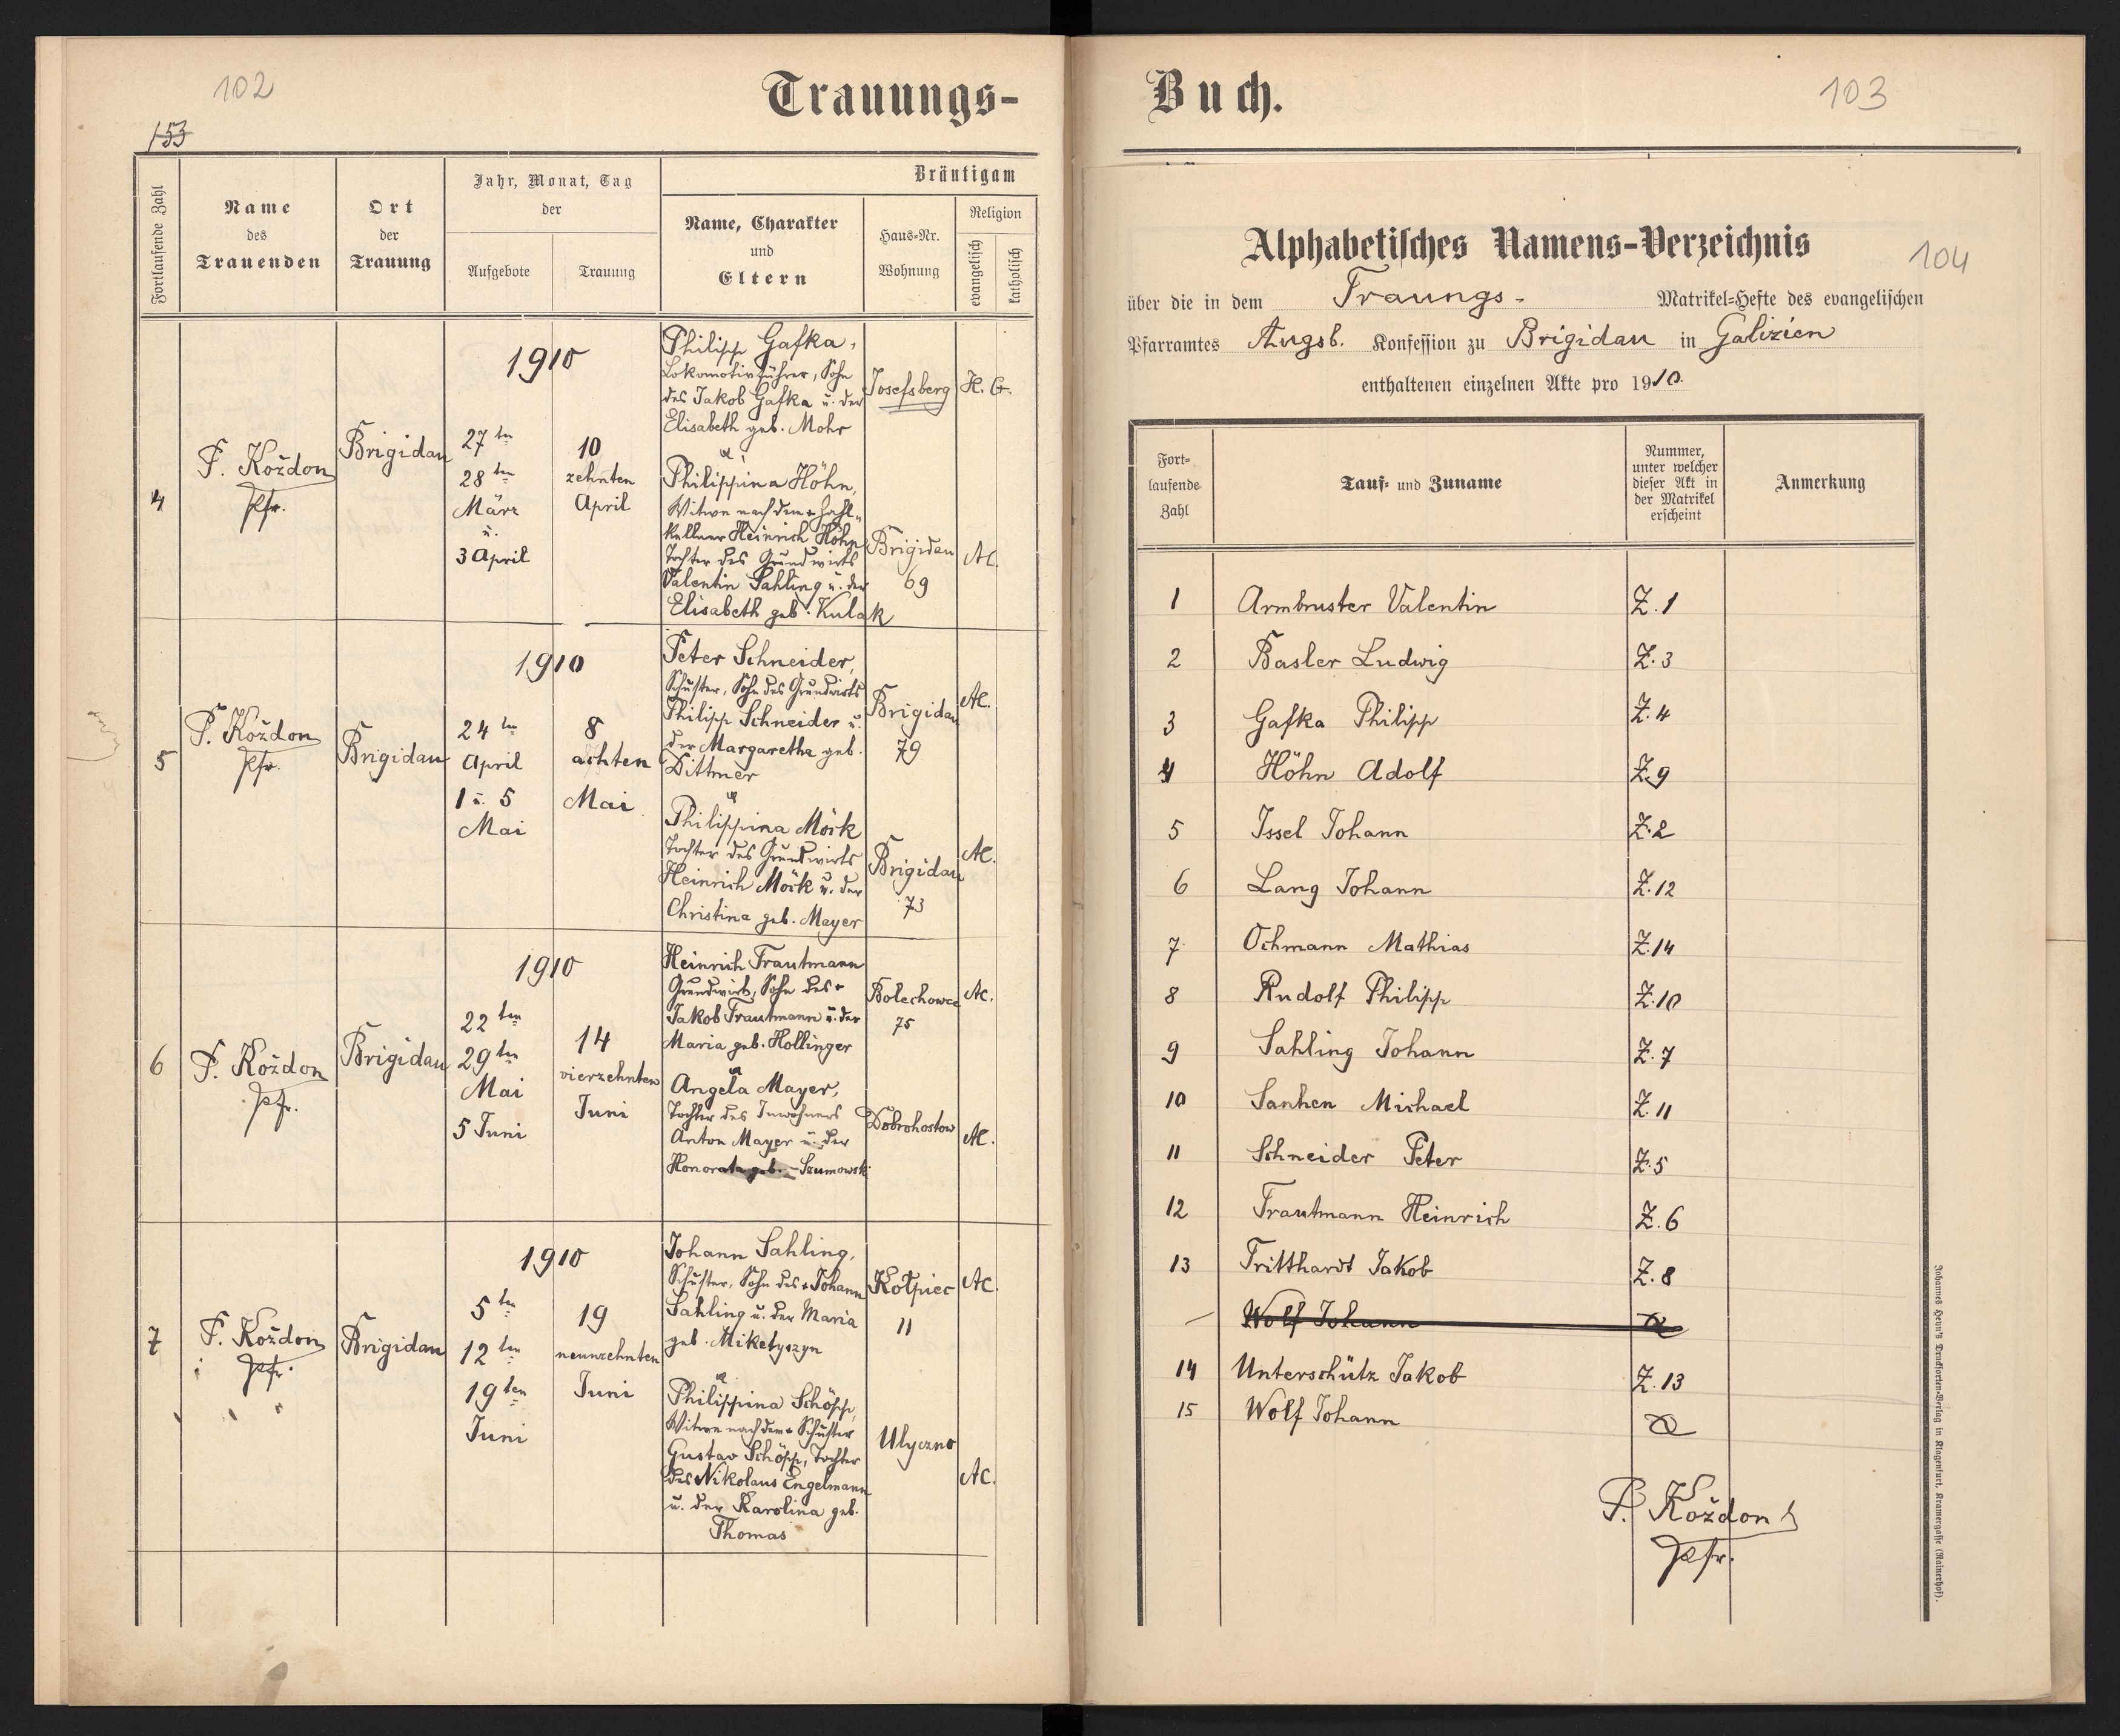 102
Trauungs-
153
Fortlaufende Zahl
Name
des
Trauenden
Ort
der
Trauung
Jahr, Monat, Tag
der
Aufgebote
Trauung
Bräutigam
Name, Charakter
und
Eltern
Haus=Nr.
Wohnung
Religion
evangelisch
katholisch
4
P. Koždon
Pfr.
Brigidau
1910
27ten
28ten
März
u.
3 April
10
zehnten
April
Philipp Gafka,
Lokomotivführer, Sohn
des Jakob Gafka u. der
Elisabeth geb. Mohr
Josefsberg
H. C.
Philippina Höhn,
Witwe nach dem + Zahl-
kellner Heinrich Höhn
Tochter des Grundwirts
Valentin Sahling u. der
Elisabeth geb. Kulak
Brigidau
69
AC.
5
P. Koždon
Pfr.
Brigidau
1910
24ten
April
1 u. 5
Mai
8
achten
Mai
Peter Schneider,
Schuster, Sohn des Grundwirts
Philipp Schneider u.
der Margaretha geb.
Dittmer
Brigidau
79
AC.
Philippina Mörk
Tochter des Grundwirts
Heinrich Mörk u. der
Christina geb. Mayer
Brigidau
73
AC.
6
P. Koždon
Pfr.
Brigidau
1910
22ten
29ten
Mai
5 Juni
14
vierzehnten
Juni
Heinrich Trautmann
Grundwirt, Sohn des +
Jakob Trautmann u. der
Maria geb. Hollinger
Bolechowce
75
AC.
Angela Mayer,
Tochter des Inwohners
Anton Mayer u. der
Honorata geb. Szumowski
Dobrohostow
AC.
7
P. Koždon
Pfr.
Brigidau
1910
5ten
12ten
19ten
Juni
19
neunzehnten
Juni
Johann Sahling,
Schuster, Sohn des + Johann
Sahling u. der Maria
geb. Miketyszyn
Kołpiec
11
AC.
Philippina Schöpp,
Witwe nach dem + Schuster
Gustav Schöpp, Tochter
des Nikolaus Engelmann
u. der Karolina geb.
Thomas
Ulyczno
AC.
Buch.
103
Alphabetisches Namens-Verzeichnis
104
über die in dem Traungs- Matrikel=Hefte des evangelischen
Pfarramtes Augsb. Konfession zu Brigidau in Galizien
enthaltenen einzelnen Akte pro 1910.
Fort=
laufende
Zahl
Tauf= und Zuname
Nummer,
unter welcher
dieser Akt in
der Matrikel
erscheint
Anmerkung
1 Armbruster Valentin Z. 1
2 Basler Ludwig Z. 3
3 Gafka Philipp Z. 4
4 Höhn Adolf Z. 9
5 Issel Johann Z. 2
6 Lang Johann Z. 12
7 Ochmann Mathias Z. 14
8 Rudolf Philipp Z. 10
9 Sahling Johann Z. 7
10 Sanhen Michael Z. 11
11 Schneider Peter Z. 5
12 Trautmann Heinrich Z. 6
13 Tritthardt Jakob Z. 8
— Wolf Johann
14 Unterschütz Jakob Z. 13
15 Wolf Johann
P. Koždon
Pfr.
Johannes Heyn's Drucksorten-Verlag in Klagenfurt, Kramergasse (Rainerhof).